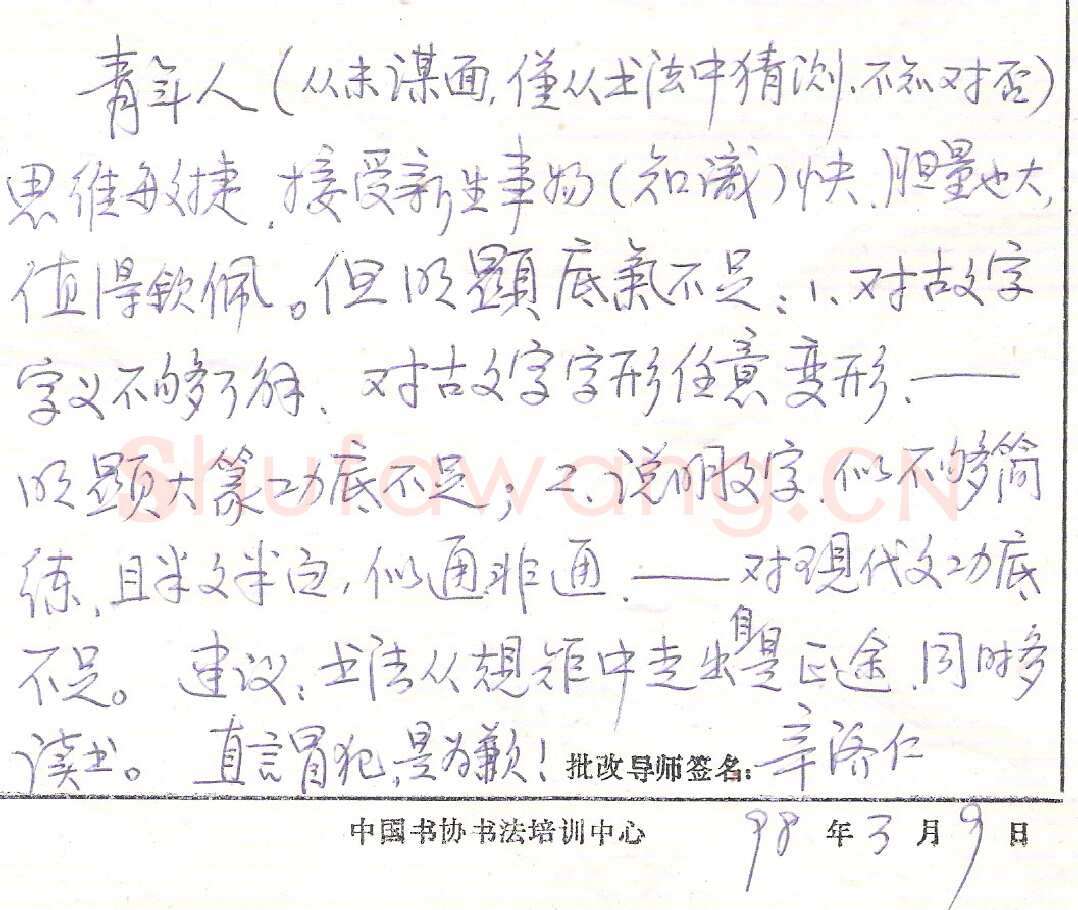 青年人（从未谋面，僅从书法中猜测，不知对否）
思维敏捷，接受新生事物（知識）快，胆量也大，
值得钦佩。但明顕底氣不足：1、对古文字
字义不够了解，对古文字字形任意变形，——
明顕大篆功底不足；2、说明文字，似不够简
练，且半文半白，似通非通，——对現代文功底
不足。 建议：书法从規矩中走出自是正途，同时多
读书。 直言冒犯，是为歉！批改导师签名：辛济仁
中国书协书法培训中心 98年3月9日
Shufawang.CN